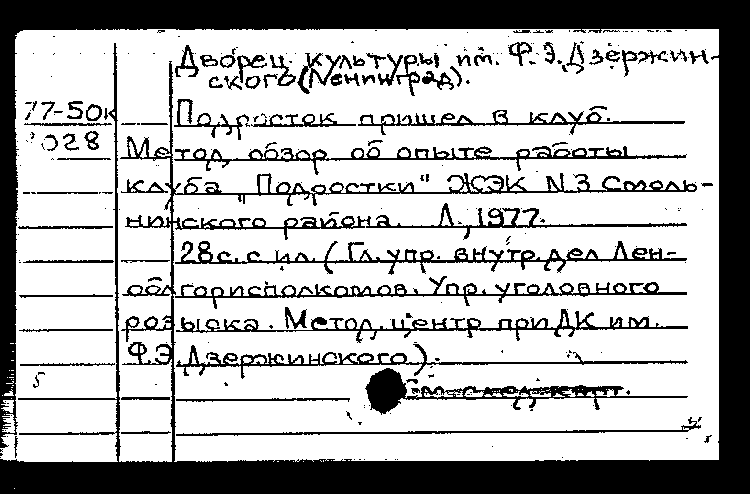 Дворец культуры им. Ф.Э.Дзержин-
ского (Ленинград).
77-50к Подросток пришел в клуб.
1028 Метод. обзор об опыте работы
клуба „Подростки" ЖЭК N 3 Смоль-
нинского района. Л., 1977.
28с. с ил. (Гл. упр. внутр. дел Лен-
облгорисполкомов. Упр. уголовного
розыска. Метод. центр при ДК им.
Ф.Э.Дзержинского).
См. след. карт.